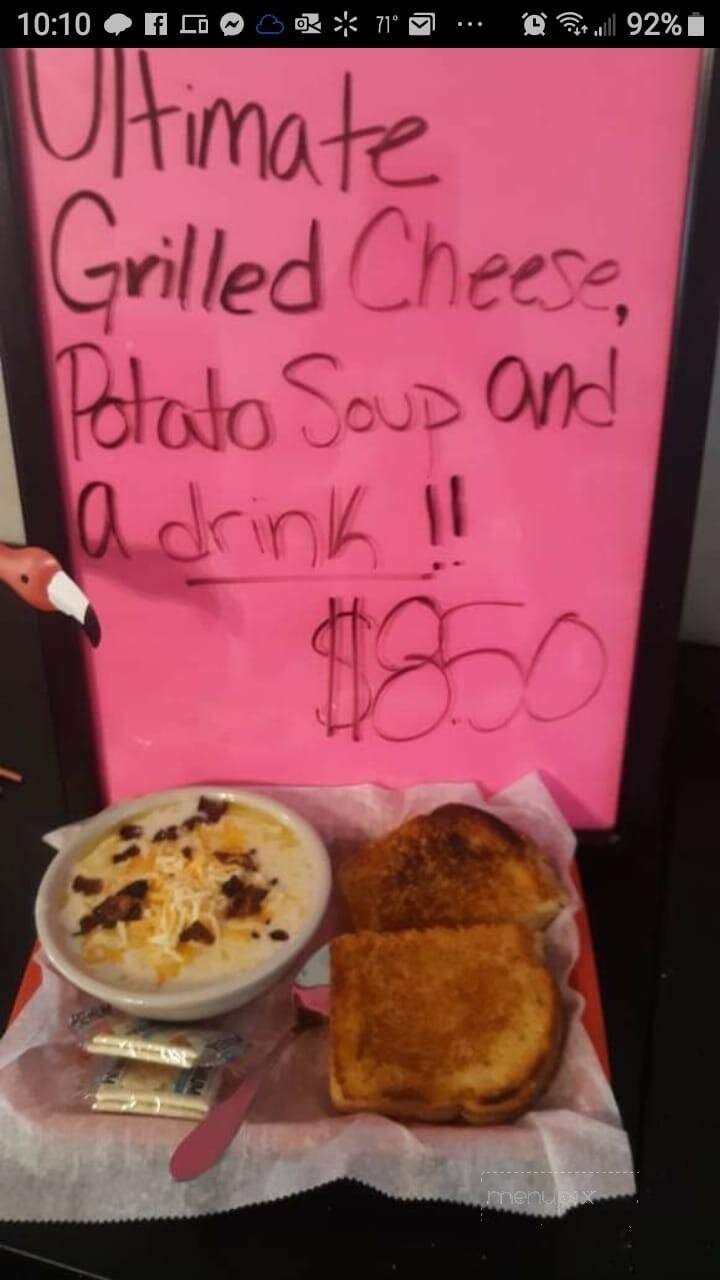 10:10 71° 92%
Ultimate
Grilled Cheese,
Potato Soup and
a drink !!
$8.50
menupix